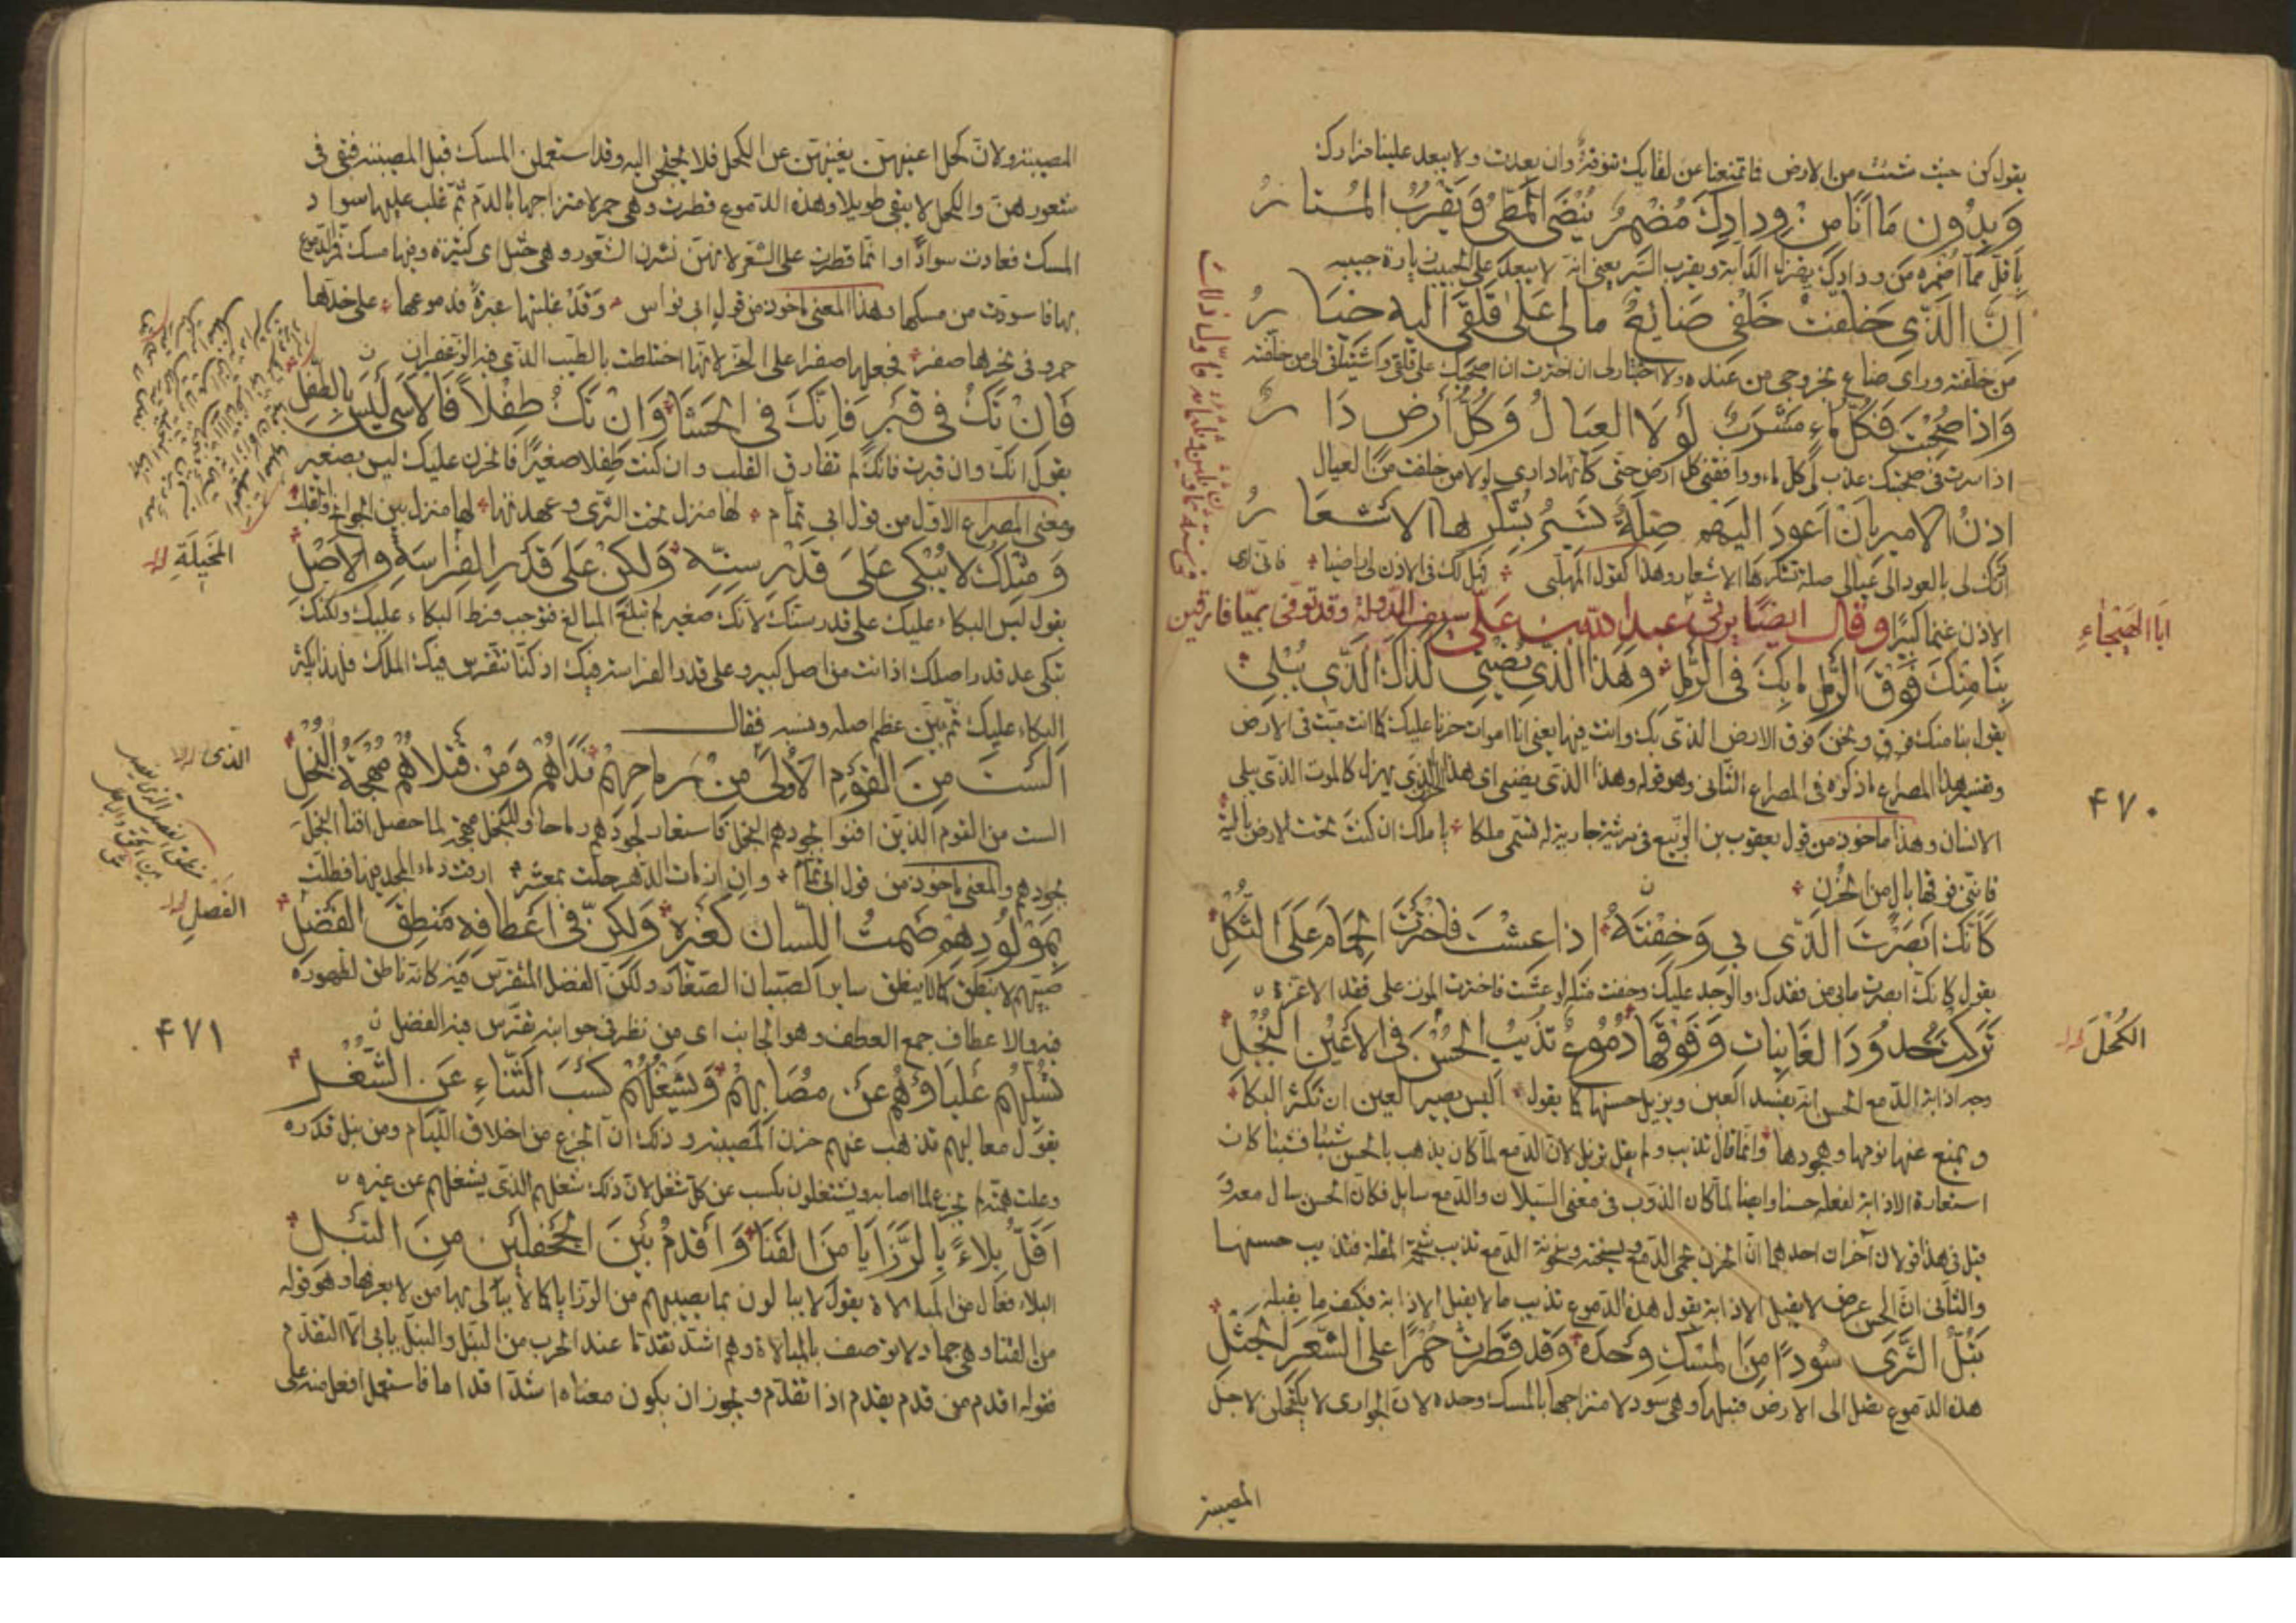 يقول كن حيث شئت من الارض فما تمنعنا عن لقايك تنوفة وان بعدت ولا يبعد علينا مزارك
وَبِدُونِ مَا اَنَا مِنْ وِدادِكَ مُضْمِرٌ يُنْضَى المَطِيُّ وَيَقْرُبُ المُستا رُ
باقل مما اضمره من ودادك يهزل الدابة ويقرب السير يعني انه لا يبعد على المحب زيارة حبيبه
اِنَّ الَّذِي خَلَّفْتُ خَلْفِي ضَائِعٌ مالِي عَلَى قَلَقِي اليهِ خِيَا رُ
من خلفته وراى ضاع بخروجي من عنده ولا اختيار لي ان اخترت ان اصحبك على قلقي الى من خلفته
وَاذا صُحِبْتَ فَكُلُّ ماءٍ مَشْرَبٌ لَولَا العِيَالُ وَكُلُّ أَرضٍ دَا رُ
اذا سرت في صحبتك عذب لي كل ماء ووافقني كل ارض حتى كانها داري لولا من خلفت من العيال
اِذنُ الاميرِ بِاَنْ اَعودَ اليَهِم صِلَةٌ تَسيرُ بِشُكْرِها الاَشعَا رُ
اذنك لي بالعود الى عيالي صلة تشكرها الاشعار وهذا كقول المهلبي فهل لك في الاذن لي راضيا فاني ارى
الاذن غنما كبيرا وقال ايضا يرثي عبد الله بن علي سيف الدولة وقد توفى بميا فارقين
ابا الهيجاءِ
بِنَا مِنكَ فَوْقَ الرَّملِ ما بِكَ فِي الرَّملِ وهَذا الَّذي يُضْنِي كَذاكَ الَّذي يُبْلِي
يقول بنا منك فوق ونحن فوق الارض الذي بك وانت فيها يعني انا اموات حزنا عليك كما انت ميت في الارض
وتفسير هذا المصراع ما ذكره في المصراع الثاني وهو قوله وهذا الذي يضني اي هذا الحزن الذي يهزل كالموت الذي يبلي
٤٧٠
الانسان وهذا ماخوذ من قول يعقوب بن الربيع في مرثية جارية له تسمى ملكا يا ملك ان كنت تحت الارض بالية
فانني فوقها بال من الحزن
كَاَنَّكَ اَبْصَرْتَ الَّذي بِي وَخِفْتَهُ اِذا عِشْتَ فاخْتَرْتَ الحِمَامَ عَلَى الثُّكْلِ
يقول كانك ابصرت ما بي من فقدك والوجد عليك وخفت مثله لو عشت فاخترت الموت على فقد الاعزة
تَرَكْتَ خُدُودَ الغَانِيَاتِ وَفَوْقَهَا دُمُوعٌ تُذِيبُ الحُسْنَ فِي الاَعْيُنِ النُّجْلِ
الكُحْلَ
وجه اذابة الدمع الحسن انه يفسد العين ويزيل حسنها كما يقول اليس يضير العين ان تكثر البكا
ويمنع عنها نومها وهجودها وانما قال تذيب ولم يقل تزيل لان الدمع لما كان يذهب بالحسن شيئا فشيئا كان
استعارة الاذابة لفعله حسنا وايضا لما كان الذوب في معنى السيلان والدمع سايل فكان الحسن سال معه
قيل في هذا قولان آخران احدهما ان الحزن يحمي الدمع ويسخنه وسخونة الدمع تذيب شحمة المقلة فتذيب حسنها
والثاني ان الحسن عرض لا يقبل الاذابة يقول هذه الدموع تذيب ما لا يقبل الاذابة فكيف ما يقبله
تَبُلُّ الثَّرَى سُودًا مِنَ المِسْكِ وَحْدَهُ وَقَد قَطَرَتْ حُمْرًا على الشَّعَرِ الجَثْلِ
هذه الدموع تصل الى الارض فتبلها وهي سود لامتزاجها بالمسك وحده لان الجواري لا يكتحلن لاجل
المصيبة
المصيبة ولان كحل اعينهن يغنيهن عن الكحل فلا يحتجن اليه وقد استعملن المسك قبل المصيبة فبقي في
شعورهن والكحل لا يبقى طويلا وهذه الدموع قطرت وهي حمر لامتزاجها بالدم ثم غلب عليها سواد
المسك فعادت سوادا وانما قطرت على الشعر لانهن نشرن الشعور وهي جثل اي كثيرة وفيها مسك فمر الدموع
بها فاسودت من مسكها وهذا المعنى ماخوذ من قول ابي نواس وقد غلبتها عبرة فدموعها على خدها
حمر وفي نحرها صفر فجعلها صفرا على النحر لانها اختلطت بالطيب الذي فيه الزعفران
فَاِنْ تَكُ فِي قَبْرٍ فَاِنَّكَ فِي الحَشَا وَاِنْ تَكُ طِفْلاً فَالاَسَى لَيْسَ بِالطِّفْلِ
يقول انك وان قبرت فانك لم تفارق القلب وان كنت طفلا صغيرا فالحزن عليك ليس بصغير
ومعنى المصراع الاول من قول ابي تمام لها منزل تحت الثرى وعهدتها لها منزل بين الجوانح والقلب
وَمِثْلُكَ لا يُبْكَى عَلَى قَدْرِ سِنِّهِ وَلكِنْ عَلَى قَدْرِ الفِرَاسَةِ والاَصْلِ
المَخِيلَةِ
يقول ليس البكاء عليك على قدر سنك لانك صغير لم تبلغ المبالغ فتوجب فرط البكاء عليك ولكنك
تبكى على قدر اصلك اذ انت من اصل كبير وعلى قدر الفراسة فيك اذ كنا نتفرس فيك الملك فلهذا يكثر
البكاء عليك ثم بين عظم اصله ونسبه فقال
اَلَسْتَ مِنَ القَوْمِ الاُولَى مِنْ رِماحِهِمْ نَدَاهُمْ وَمِنْ قَتْلاهُمُ مُهْجَةُ البُخْلِ
الذي
الست من القوم الذين افنوا بجودهم البخل فاستعار لجودهم رماحا وللبخل مهجة لما حصل افناء البخل
بجودهم والمعنى ماخوذ من قول ابي تمام وان ازمات الدهر حلت بمعشر ارقت دماء المحل فيها فطلت
بِمَوْلُودِهِم صَمْتُ اللِّسَانِ كَغَيْرِهِ وَلكِنَّ فِي اَعْطَافِهِ مَنْطِقَ الفَضْلِ
الفَصْلِ
صبيهم لا ينطق كما لا ينطق ساير الصبيان الصغار ولكن الفضل المتفرس فيه كانه ناطق لظهوره
فيه والاعطاف جمع العطف وهو الجانب اي من نظر في جوانبه تفرس فيه الفضل
٤٧١
تُسَلِّيهِمُ عَلْيَاؤُهُمْ عَنْ مُصَابِهِمْ وَيَشْغَلُهُمْ كَسْبُ الثَّنَاءِ عَنِ الشُّغْلِ
يقول معاليهم تذهب عنهم حزن المصيبة وذلك ان الجزع من اخلاق اللئام ومن نبل قدره
وعلت همته لم يجزع لما اصابه ويشتغلون بكسب عن كل شغل لان ذلك شغلهم الذي يشغلهم عن غيره
اَقَلُّ بِلاءً بِالرَّزَايَا مِنَ القَنَا وَاَقْدَمُ بَيْنَ الجَحْفَلَيْنِ مِنَ النَّبْلِ
البلاء فعال من المبالاة يقول لا يبالون بما يصيبهم من الرزايا كما لا يبالي بها من لا يعرفها وهو قوله
من القنا وهي جماد لا توصف بالمبالاة وهم اشد تقدما عند الحرب من النبل والنبل يابى الا التقدم
فقوله اقدم من قدم يقدم اذا تقدم ويجوز ان يكون معناه اشد اقداما فاستعمل افعل منه على